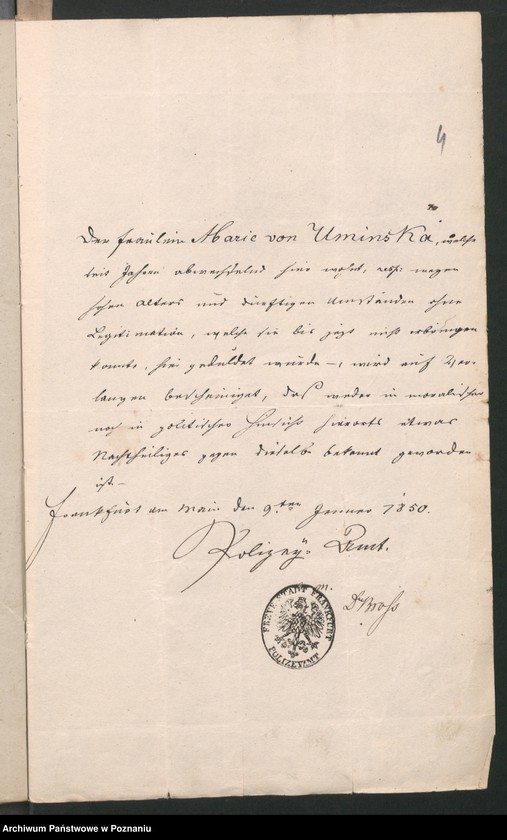 4
Der Fräulein Marie von Uminska, welche
seit Jahren abwechselnd hier wohnt, resp. wegen
hohen Alters und dürftigen Umständen ohne
Legitimation, welche sie bis jezt nicht erbringen
konnte, hier geduldet wurde –, wird auf Ver-
langen bescheiniget, daß weder in moralischer
noch in politischer Hinsicht hierorts etwas
Nachtheiliges gegen dieselbe bekannt geworden
ist. –
Frankfurt am Main den 9ten Jenner 1850.
Polizey-Amt.
FREYE STADT FRANKFURT
POLIZEYAMT
Archiwum Państwowe w Poznaniu